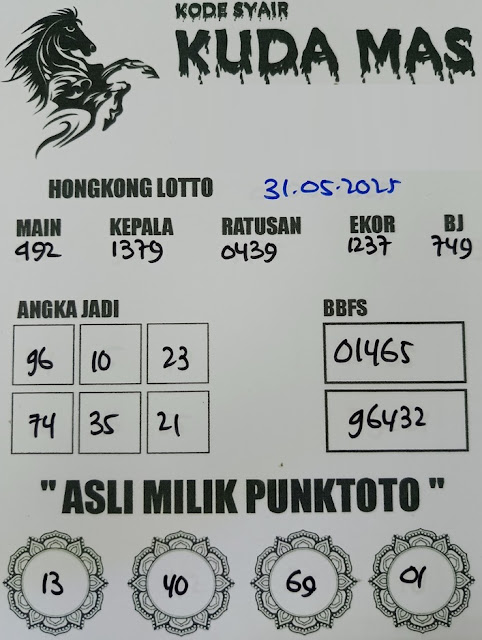 KODE SYAIR
KUDA MAS
HONGKONG LOTTO 31.05.2025
MAIN KEPALA RATUSAN EKOR BJ
492 1379 0439 1237 749
ANGKA JADI BBFS
96 10 23 01465
74 35 21 96432
" ASLI MILIK PUNKTOTO "
13 40 69 01